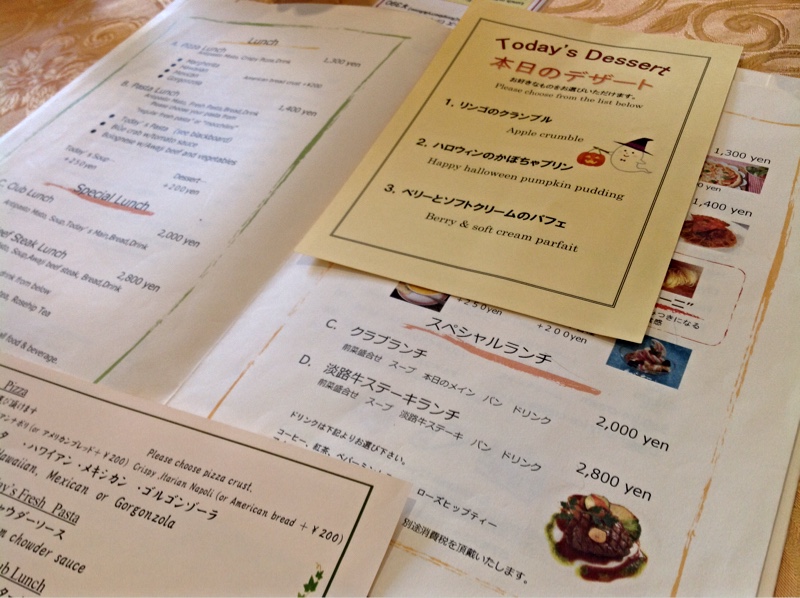 Lunch
A. Pizza Lunch
Antipasto Misto, Crispy Pizza, Drink
1,300 yen
Margherita
Hawaiian
Mexican
Gorgonzola
American bread crust +¥200
B. Pasta Lunch
1,400 yen
Antipasto Misto, Fresh Pasta, Bread, Drink
Please choose your pasta from
Today's Pasta (on blackboard)
Blue crab w/tomato sauce
Bolognese w/Awaji beef and vegetables
Today's Soup
+250yen
Dessert
+200yen
Special Lunch
C. Club Lunch
Antipasto Misto, Soup, Today's Main, Bread, Drink
2,000 yen
Beef Steak Lunch
Soup, Awaji beef steak, Bread, Drink
2,800 yen
drink from below
Tea, Rosehip Tea
of food & beverage.
Today's Dessert
本日のデザート
お好きなものをお選びいただけます。
Please choose from the list below
1. リンゴのクランブル
Apple crumble
2. ハロウィンのかぼちゃプリン
Happy halloween pumpkin pudding
3. ベリーとソフトクリームのパフェ
Berry & soft cream parfait
1,300 yen
1,400 yen
ーニ"
つきになる
+250yen
+200yen
スペシャルランチ
C. クラブランチ
前菜盛合せ スープ 本日のメイン パン ドリンク
2,000 yen
D. 淡路牛ステーキランチ
前菜盛合せ スープ 淡路牛ステーキ パン ドリンク
2,800 yen
ドリンクは下記よりお選び下さい。
コーヒー、紅茶、ペパーミント
ローズヒップティー
別途消費税を頂戴いたします。
Pizza
Please choose pizza crust.
(or アメリカンブレッド+¥200) Crispy ,Itarian Napoli (or American bread + ¥200)
・ハワイアン・メキシカン・ゴルゴンゾーラ
Hawaiian, Mexican or Gorgonzola
Today's Fresh Pasta
チャウダーソース
chowder sauce
Club Lunch